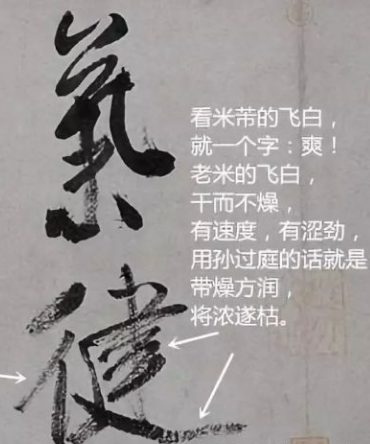 氣
健
看米芾的飞白，
就一个字：爽！
老米的飞白，
干而不燥，
有速度，有涩劲，
用孙过庭的话就是
带燥方润，
将浓遂枯。